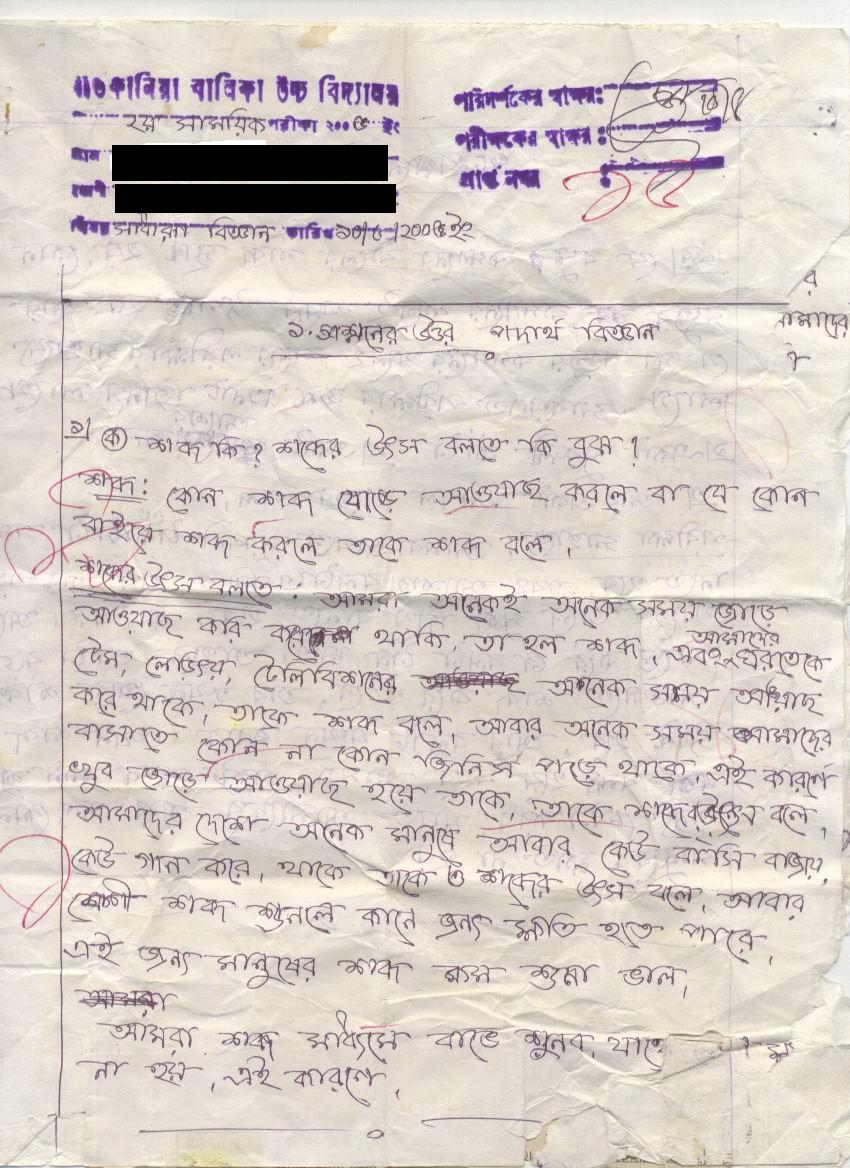 কানিয়া বালিকা উচ্চ বিদ্যালয়
২য় সাময়িক পরীক্ষা ২০০৫ ইং
নাম
শ্রেণী
বিষয় সাধারন বিজ্ঞান তারিখ ২০০৫ইং
পরিদর্শকের স্বাক্ষর:
পরীক্ষকের স্বাক্ষর:
প্রাপ্ত নম্বর
র
১. প্রশ্নের উত্তর পদার্থ বিজ্ঞান
১। ক শব্দ কি? শব্দের উৎস বলতে কি বুঝ?
শব্দ: কোন শব্দ যোড়ে আওয়াজ করলে বা যে কোন
বাইরে শব্দ করলে তাকে শব্দ বলে।
শব্দের উৎস বলতে। আমরা অনেকই অনেক সময় জোড়ে
আওয়াজ করি থাকি, তা হল শব্দ, আমাদের
টেম, টেলিবিশনের অনেক সময় আয়াজ
করে থাকে, তাকে শব্দ বলে, আবার অনেক সময় আমাদের
বাসাতে কোন না কোন জিনিস পড়ে থাকে, এই কারণে
খুব জোড়ে আওয়াজ হয়ে তাকে, তাকে শব্দের উৎস বলে,
আমাদের দেশে অনেক মানুষে আবার কেউ বাসি বাজায়,
কেউ গান করে, থাকে তাকে ও শব্দের উৎস বলে, আবার
শব্দ শুনলে কানে জন্য ক্ষতি হতে পারে,
এই জন্য মানুষের শব্দ কম শুনা ভাল,
আমরা শব্দ শুনব,
না হয়, এই কারণে,